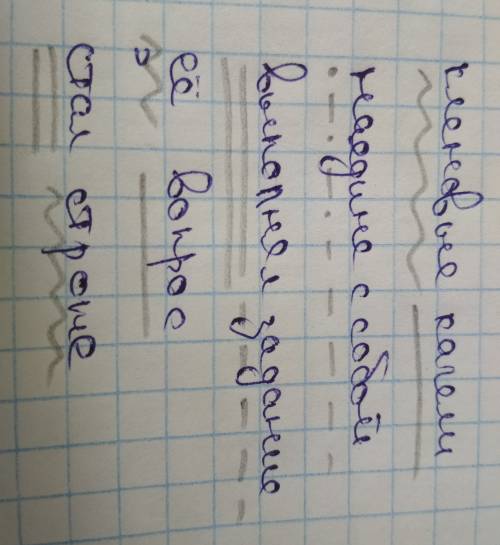 кленовые качели
наедине с собой
выполнял задание
её вопрос
стал строже